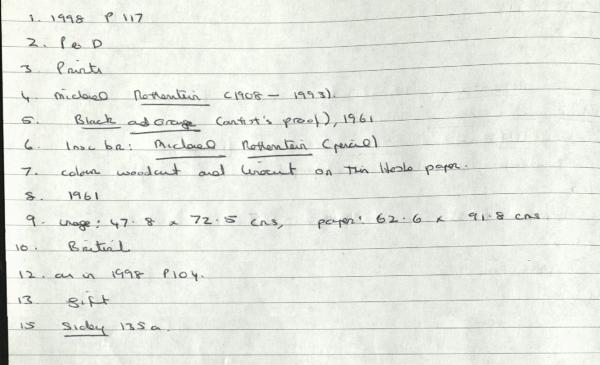 1. 1998 P 117
2. P & D
3. Prints
4. Michael Rothenstein (1908 - 1993).
5. Black and Orange (artist's proof), 1961
6. Insc br: Michael Rothenstein (pencil)
7. colour woodcut and linocut on thin paper.
8. 1961
9. image: 47.8 x 72.5 cms, paper: 62.6 x 91.8 cms
10. British
12. as in 1998 P104.
13 gift
15 Sidey 135a.